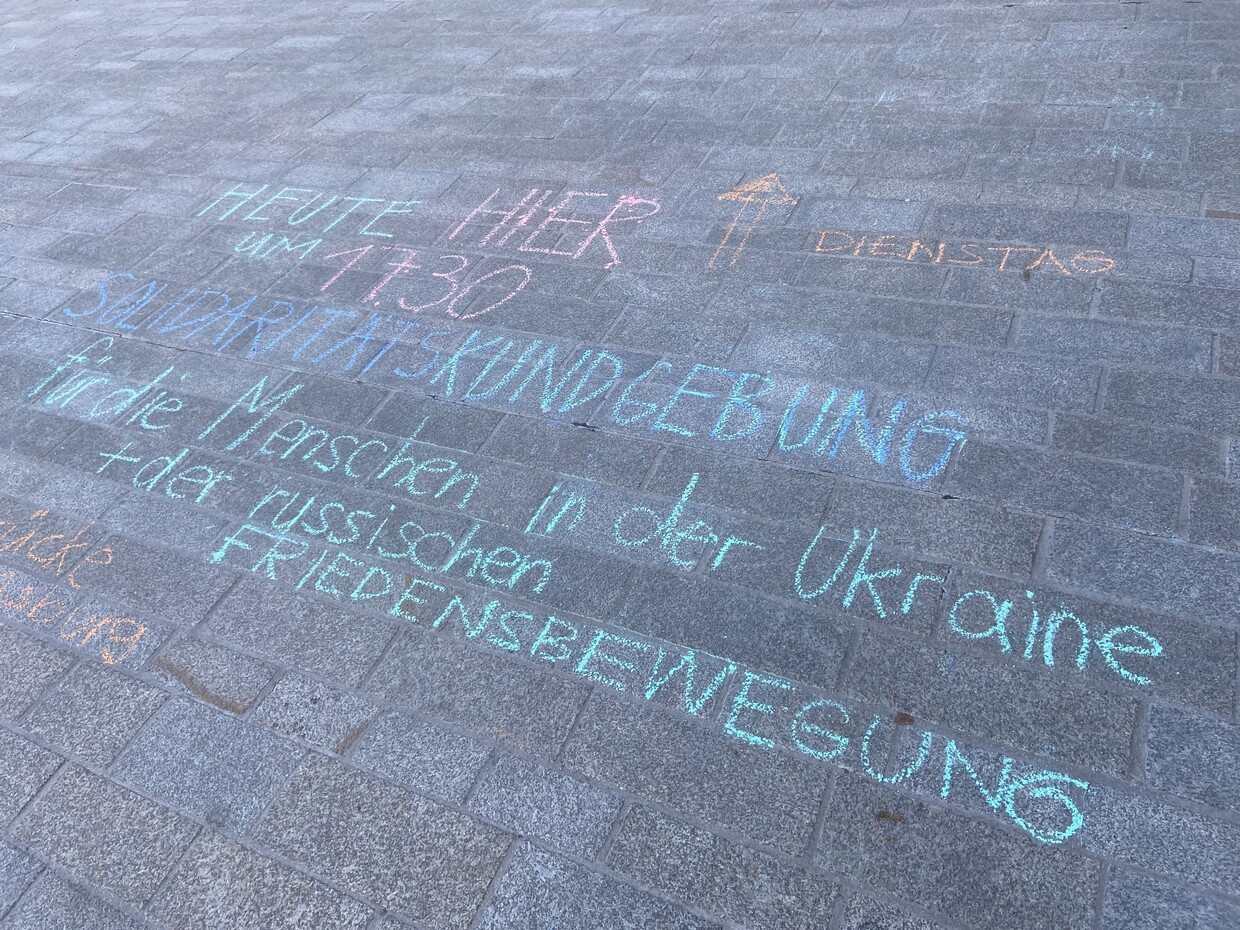 HEUTE HIER
UM 17.30
DIENSTAG
SOLIDARITÄTSKUNDGEBUNG
für die Menschen in der Ukraine
+ der russischen
FRIEDENSBEWEGUNG